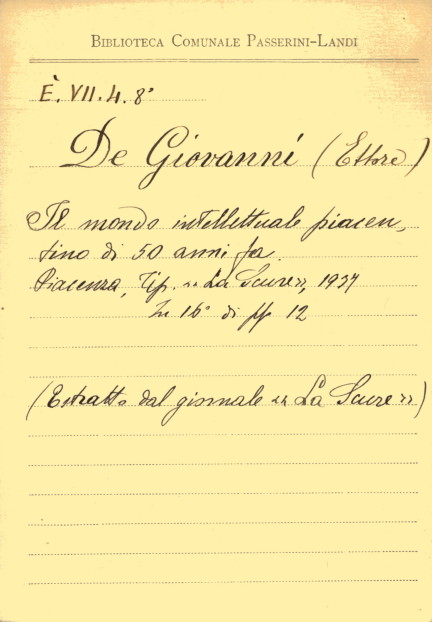 BIBLIOTECA COMUNALE PASSERINI-LANDI
È. VII. 4. 8°
De Giovanni (Ettore)
Il mondo intellettuale piacen,
tino di 50 anni fa.
Piacenza, Tip. "La Scure", 1937
In 16° di pp 12
(Estratto dal giornale "La Scure")